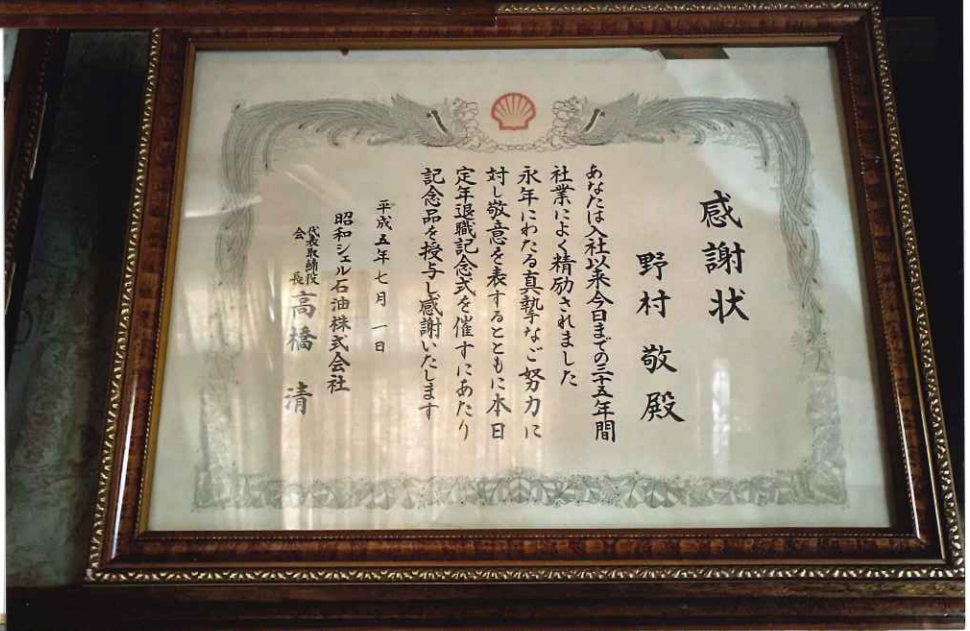 感謝状
野村 敬 殿
あなたは入社以来今日までの三十五年間
社業によく精励されました
永年にわたる真摯なご努力に
対し敬意を表するとともに本日
定年退職記念式を催すにあたり
記念品を授与し感謝いたします
平成五年七月一日
昭和シェル石油株式会社
代表取締役
会長
高橋 清